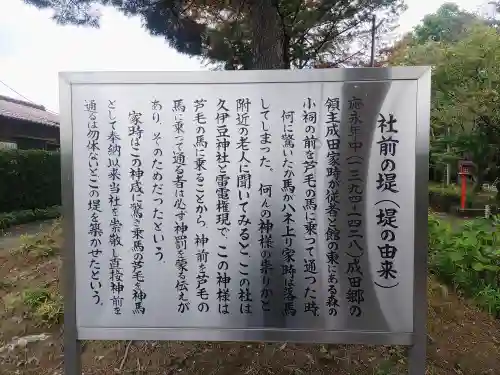 社前の堤(堤の由来)
応永年中(一三九四―一四二八)成田郷の
領主成田家時が従者と館の東にある森の
小祠の前を芦毛の馬に乗って通った時
何に驚いたか馬が八木上り家時は落馬
してしまった。何んの神様の祟りかと
附近の老人に聞いてみると、この社は
久伊豆神社と雷電権現で、この神様は
芦毛の馬に乗ることから、神前を芦毛の
馬に乗って通る者は必ず神罰を蒙る伝えが
あり、そのためだったという。
家時はこの神威に驚き乗馬の芦毛を神馬
として奉納以来当社を崇敬し直接神前を
通るは勿体ないとこの堤を築かせたという。